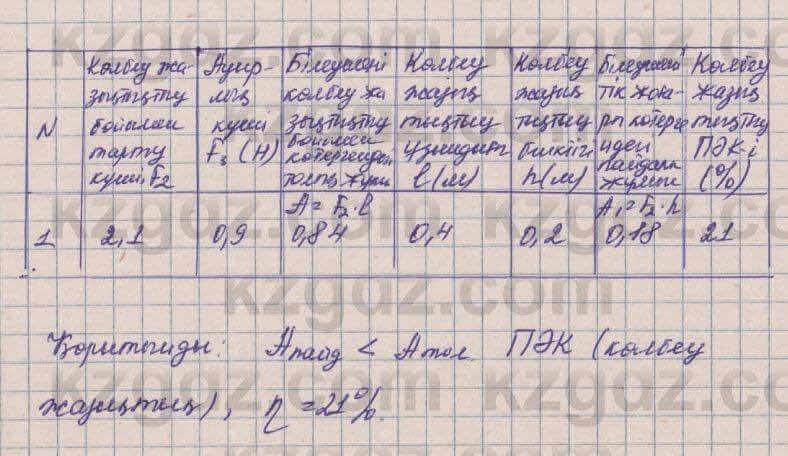 N
Колбеу жа-
зықтықты
бойымен
тарту
күші, F₂
Ауыр-
лық
күші
F₃ (Н)
Білеушені
колбеу жа
зықтықты
бойымен
көтергендегі
толық жұмыс
A = F₂·l
Колбеу
жазық
тықтың
ұзындығы
l (м)
Колбеу
жазық
тықтың
биіктігі
h (м)
Білеушені
тік жоға-
ры көтерге
ндегі
пайдалы
жұмыс
A₁ = F₂·h
Колбеу
жазық
тықтың
ПӘК і
(%)
1 2,1 0,9 0,84 0,4 0,2 0,18 21
Қорытынды: Aпайд < Aтол ПӘК (колбеу
жазықтық), η = 21%.
kzgdz.com